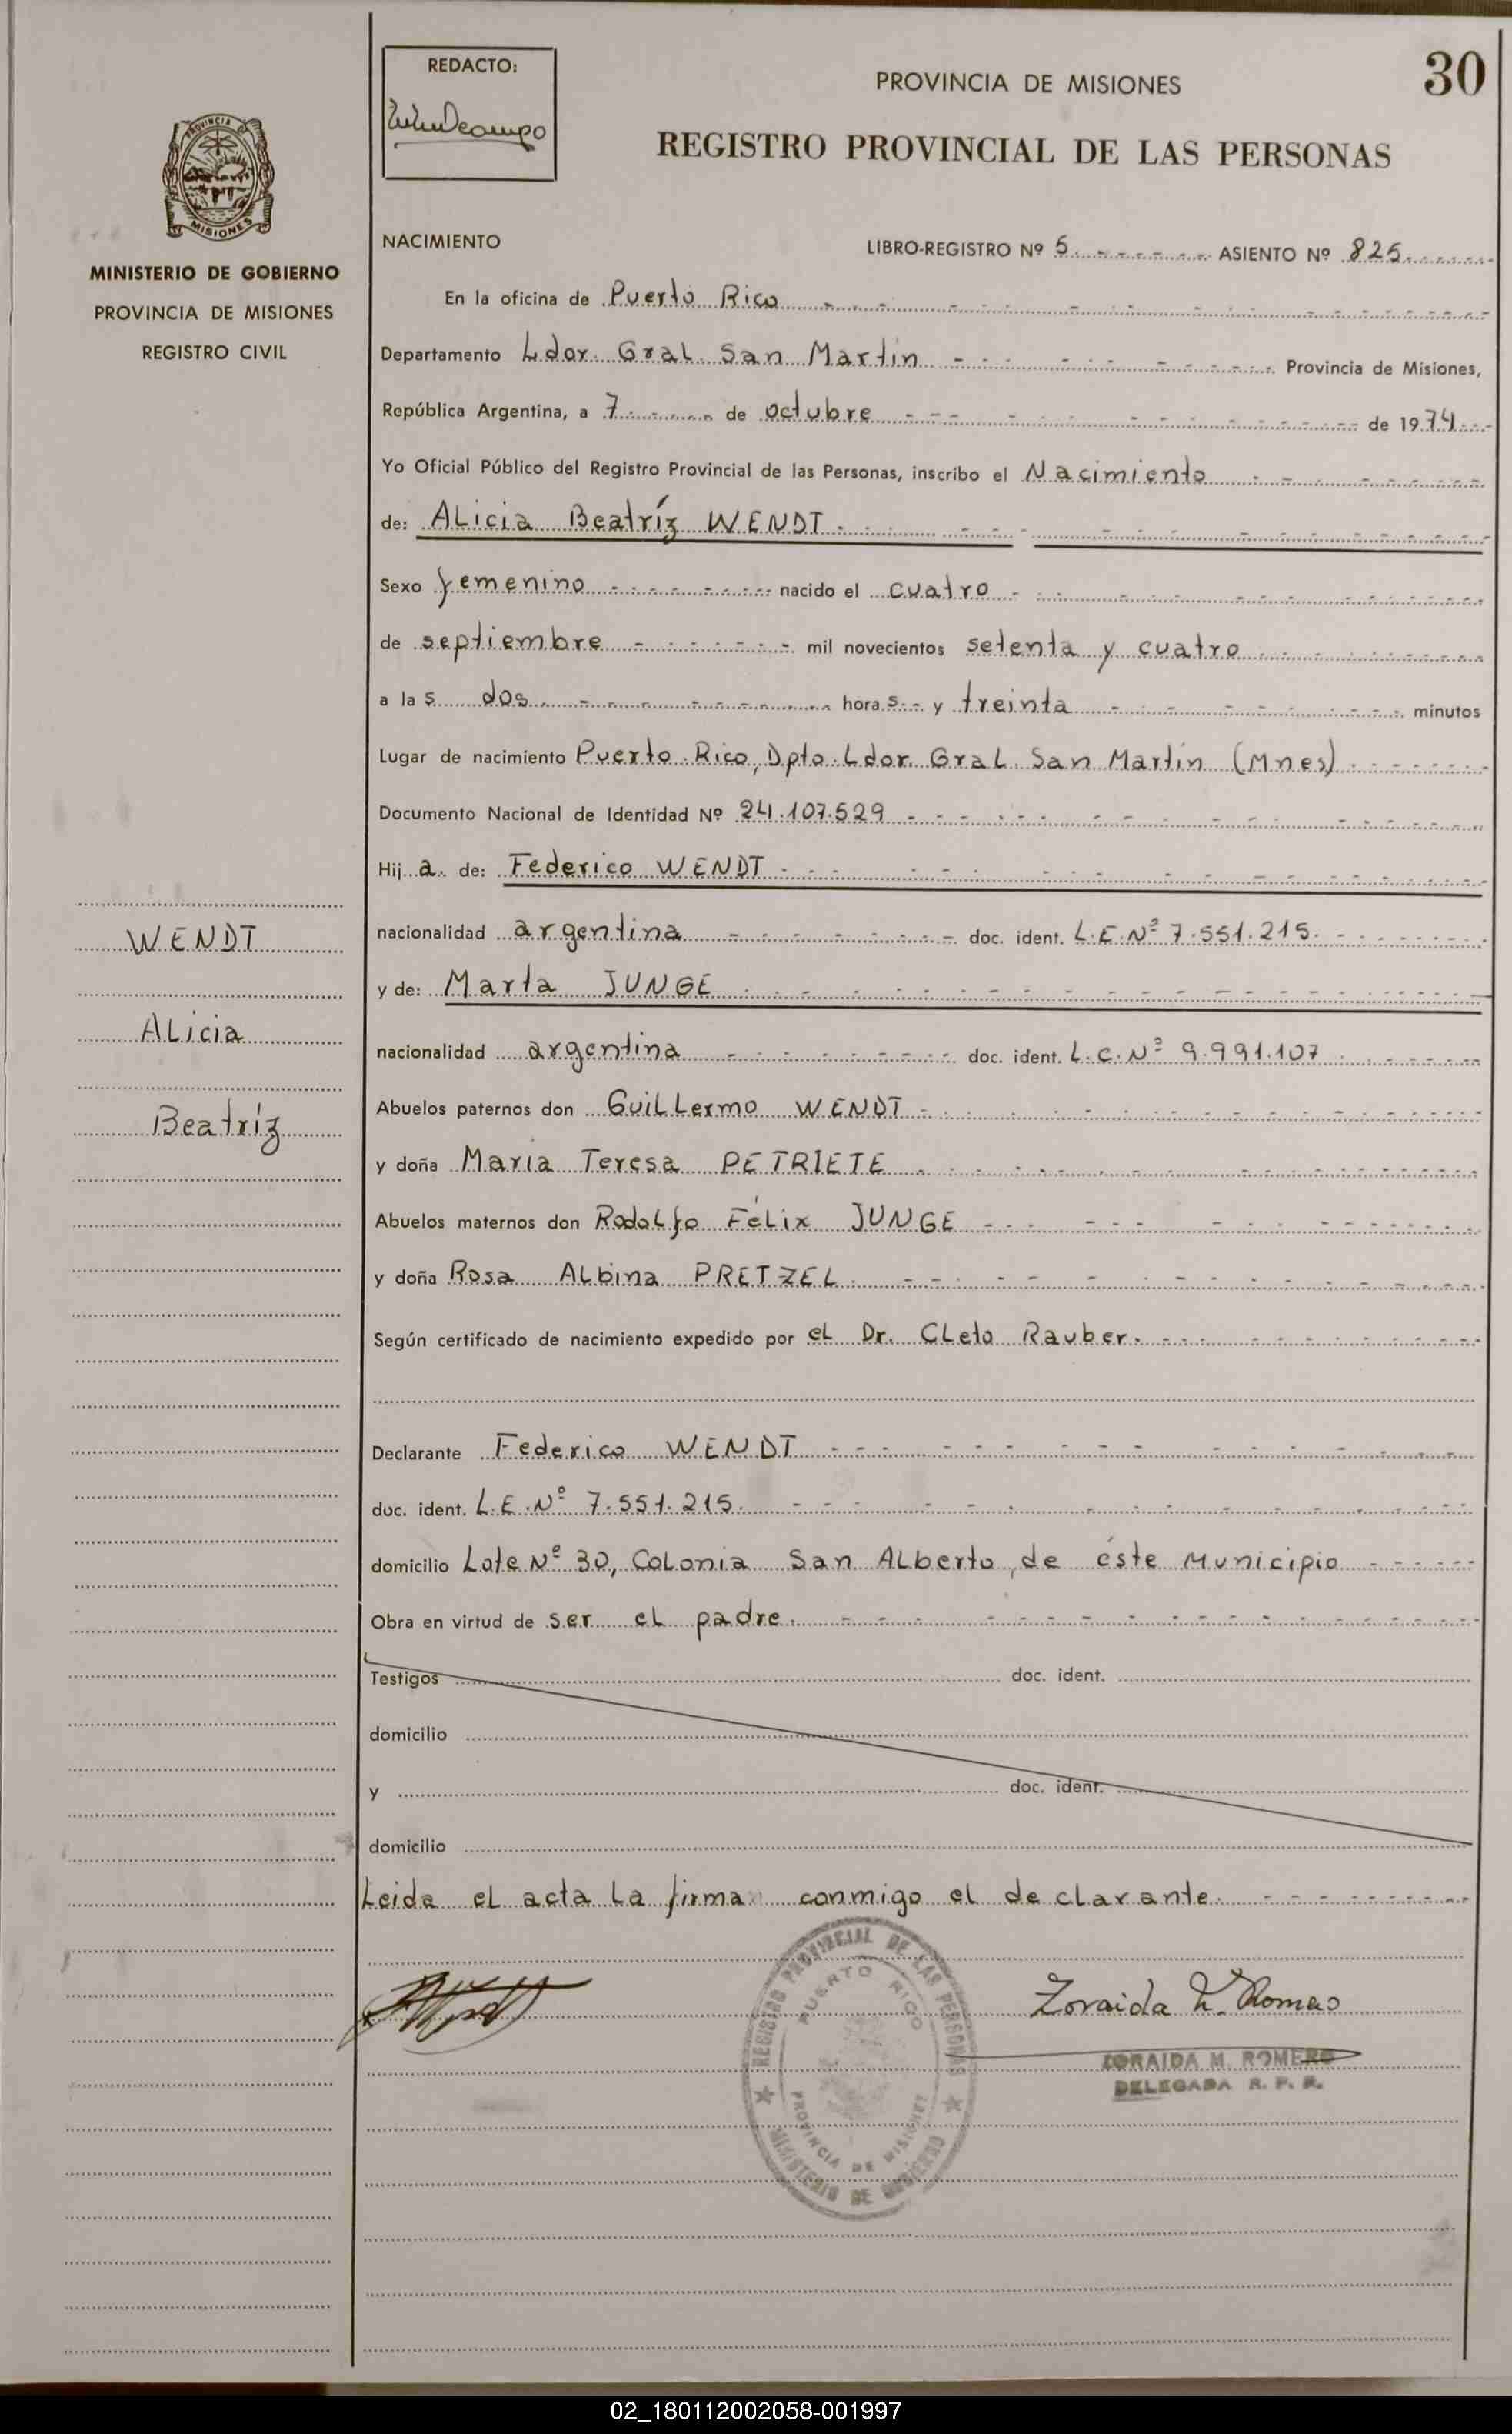 30
REDACTO:
PROVINCIA DE MISIONES
REGISTRO PROVINCIAL DE LAS PERSONAS
PROVINCIA DE
MISIONES
MINISTERIO DE GOBIERNO
PROVINCIA DE MISIONES
REGISTRO CIVIL
NACIMIENTO LIBRO-REGISTRO Nº 5 ASIENTO Nº 825
En la oficina de Puerto Rico
Departamento Ldor. Gral. San Martín Provincia de Misiones,
República Argentina, a 7 de octubre de 1974
Yo Oficial Público del Registro Provincial de las Personas, inscribo el Nacimiento
de: Alicia Beatríz WENDT
Sexo femenino nacido el cuatro
de septiembre mil novecientos setenta y cuatro
a las dos horas y treinta minutos
Lugar de nacimiento Puerto Rico, Dpto. Ldor. Gral. San Martín (Mnes)
Documento Nacional de Identidad Nº 24.107.529
Hija de: Federico WENDT
nacionalidad argentina doc. ident. L.E.Nº 7.551.215
y de: Marta JUNGE
nacionalidad argentina doc. ident. L.C.Nº 9.991.107
Abuelos paternos don Guillermo WENDT
y doña María Teresa PETRIETE
Abuelos maternos don Rodolfo Félix JUNGE
y doña Rosa Albina PRETZEL
Según certificado de nacimiento expedido por el Dr. Cleto Rauber.
Declarante Federico WENDT
doc. ident. L.E.Nº 7.551.215
domicilio Lote Nº 30, Colonia San Alberto, de éste Municipio
Obra en virtud de ser el padre.
Testigos doc. ident.
domicilio
y doc. ident.
domicilio
Leida el acta la firma conmigo el declarante.
WENDT
Alicia
Beatríz
REGISTRO PROVINCIAL DE LAS PERSONAS
PUERTO RICO
PROVINCIA DE MISIONES
MINISTERIO DE GOBIERNO
Zoraida M. Romero
ZORAIDA M. ROMERO
DELEGADA R. P. P.
02_180112002058-001997